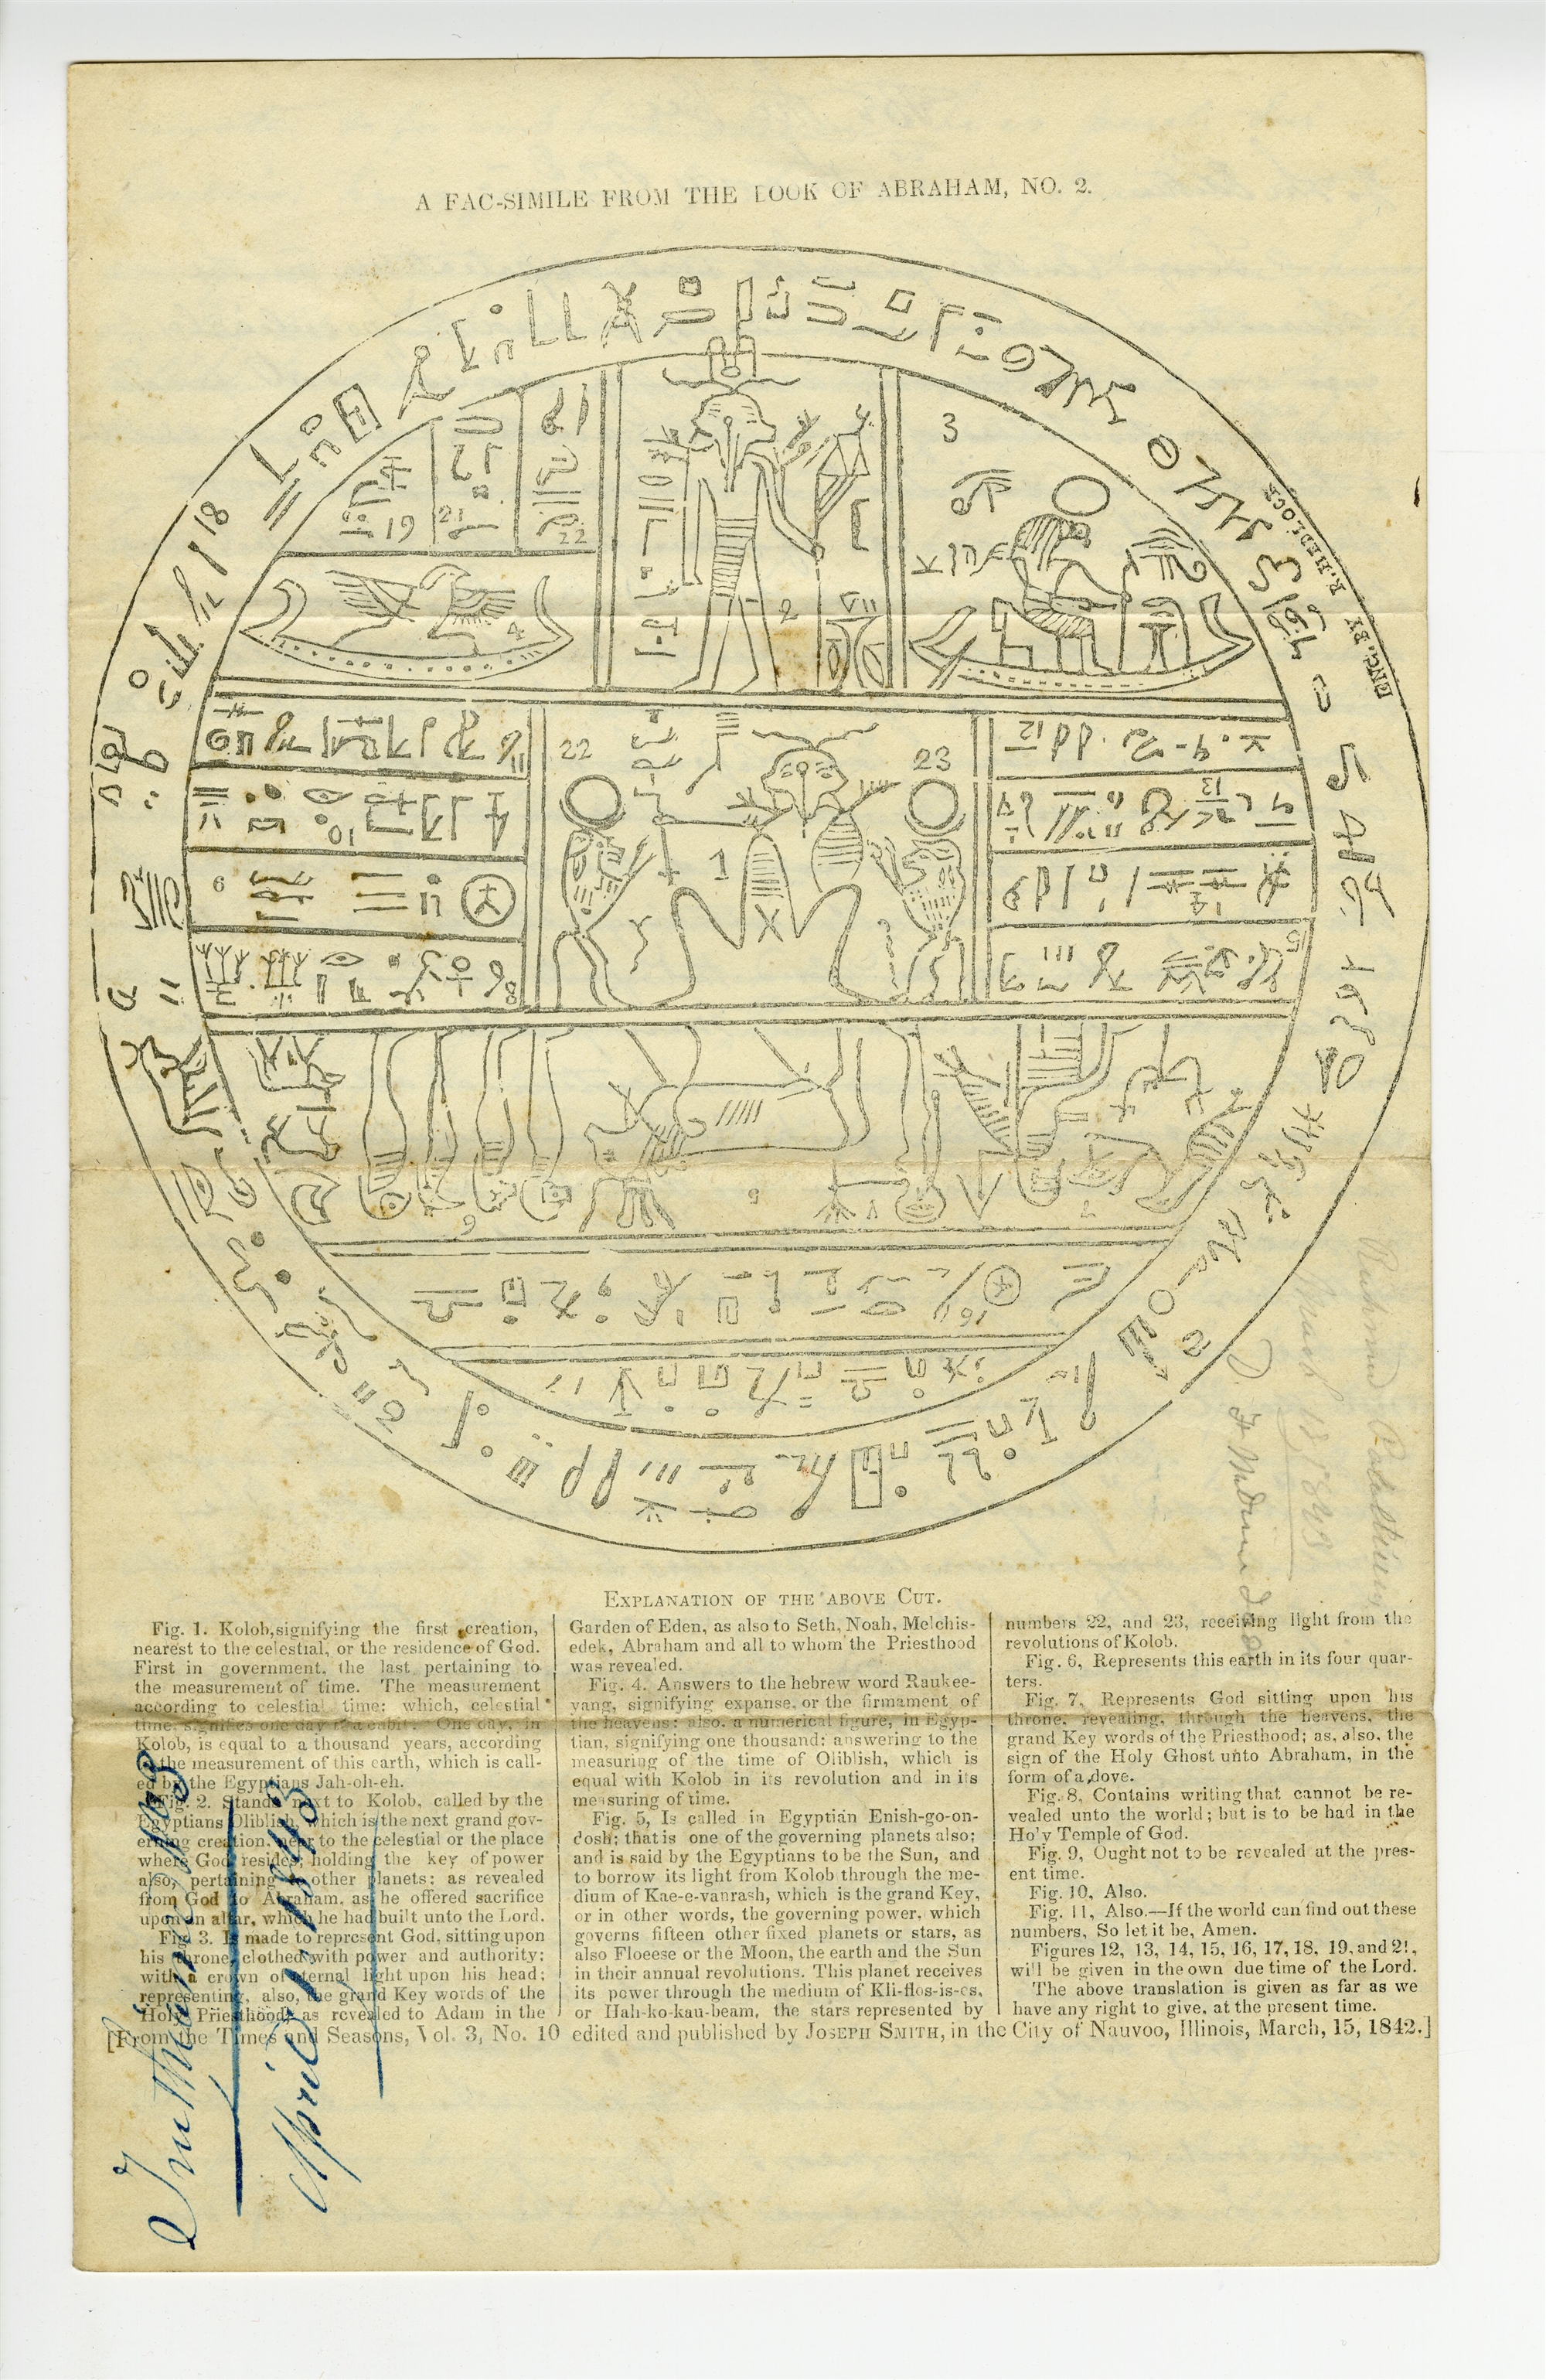 A FAC-SIMILE FROM THE BOOK OF ABRAHAM, NO. 2.
ENG. BY R. HEDLOCK
3
18
19
21
22
2
4
22
23
1
11
10
9
8
12
13
14
15
6
5
7
16
EXPLANATION OF THE ABOVE CUT.
Fig. 1. Kolob,signifying the first creation,
nearest to the celestial, or the residence of God.
First in government, the last pertaining to
the measurement of time. The measurement
according to celestial time: which, celestial
time, signifies one day to a cubit. One day, in
Kolob, is equal to a thousand years, according
the measurement of this earth, which is call-
ed by the Egyptians Jah-oh-eh.
Fig. 2. Stands next to Kolob, called by the
Egyptians Oliblish, which is the next grand gov-
erning creation, near to the celestial or the place
where God resides; holding the key of power
also, pertaining other planets: as revealed
from God to Abraham, as he offered sacrifice
upon an altar, which he had built unto the Lord.
Fig 3. Is made to represent God, sitting upon
his throne, clothed with power and authority;
with a crown of eternal light upon his head;
representing, also, the grand Key words of the
Holy Priesthood, as revealed to Adam in the
Garden of Eden, as also to Seth, Noah, Melchis-
edek, Abraham and all to whom the Priesthood
was revealed.
Fig. 4. Answers to the hebrew word Raukee-
yang, signifying expanse, or the firmament of
the heavens: also, a numerical figure, in Egyp-
tian, signifying one thousand: answering to the
measuring of the time of Oliblish, which is
equal with Kolob in its revolution and in its
measuring of time.
Fig. 5, Is called in Egyptian Enish-go-on-
dosh; that is one of the governing planets also;
and is said by the Egyptians to be the Sun, and
to borrow its light from Kolob through the me-
dium of Kae-e-vanrash, which is the grand Key,
or in other words, the governing power, which
governs fifteen other fixed planets or stars, as
also Floeese or the Moon, the earth and the Sun
in their annual revolutions. This planet receives
its power through the medium of Kli-flos-is-es,
or Hah-ko-kau-beam, the stars represented by
numbers 22, and 23, receiving light from the
revolutions of Kolob.
Fig. 6, Represents this earth in its four quar-
ters.
Fig. 7, Represents God sitting upon his
throne, revealing, through the heavens, the
grand Key words of the Priesthood; as, also, the
sign of the Holy Ghost unto Abraham, in the
form of a dove.
Fig. 8, Contains writing that cannot be re-
vealed unto the world; but is to be had in the
Holy Temple of God.
Fig. 9, Ought not to be revealed at the pres-
ent time.
Fig. 10, Also.
Fig. 11, Also.—If the world can find out these
numbers, So let it be, Amen.
Figures 12, 13, 14, 15, 16, 17, 18, 19, and 21,
will be given in the own due time of the Lord.
The above translation is given as far as we
have any right to give, at the present time.
[From the Times and Seasons, Vol. 3, No. 10 edited and published by JOSEPH SMITH, in the City of Nauvoo, Illinois, March, 15, 1842.]
April 1, 1843